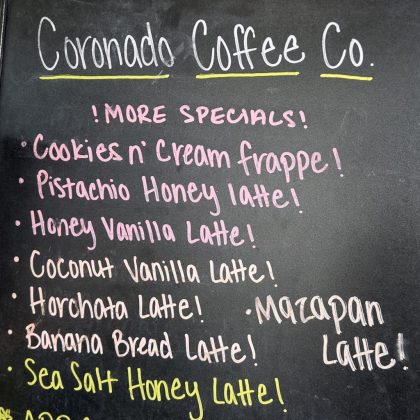 Coronado Coffee Co.
! MORE SPECIALS!
· Cookies n' Cream frappe!
· Pistachio Honey latte!
· Honey Vanilla Latte!
· Coconut Vanilla Latte!
· Horchata Latte!
· Mazapan Latte!
· Banana Bread Latte!
· Sea Salt Honey Latte!